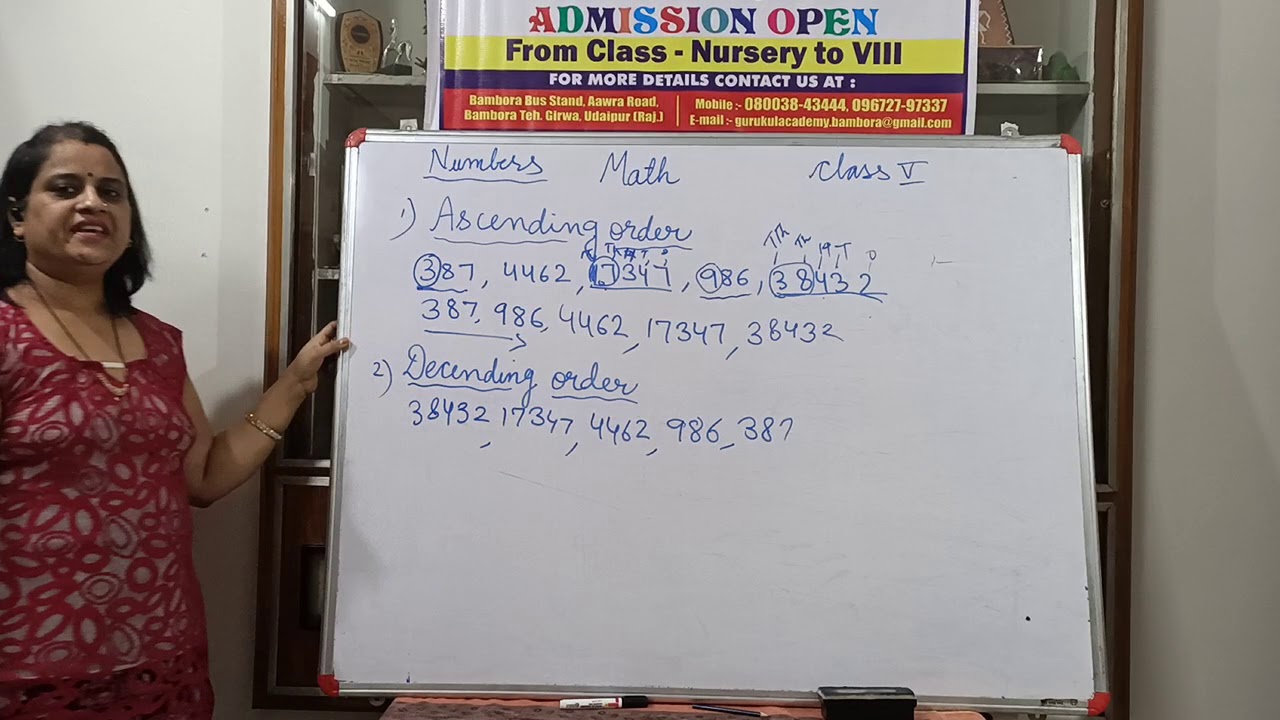 ADMISSION OPEN
From Class - Nursery to VIII
FOR MORE DETAILS CONTACT US AT :
Bambora Bus Stand, Aawra Road,
Bambora Teh. Girwa, Udaipur (Raj.)
Mobile :- 080038-43444, 096727-97337
E-mail :- gurukulacademy.bambora@gmail.com
Numbers Math Class V
1) Ascending order
387, 4462, 17347, 986, 38432
387, 986, 4462, 17347, 38432
2) Decending order
38432, 17347, 4462, 986, 387